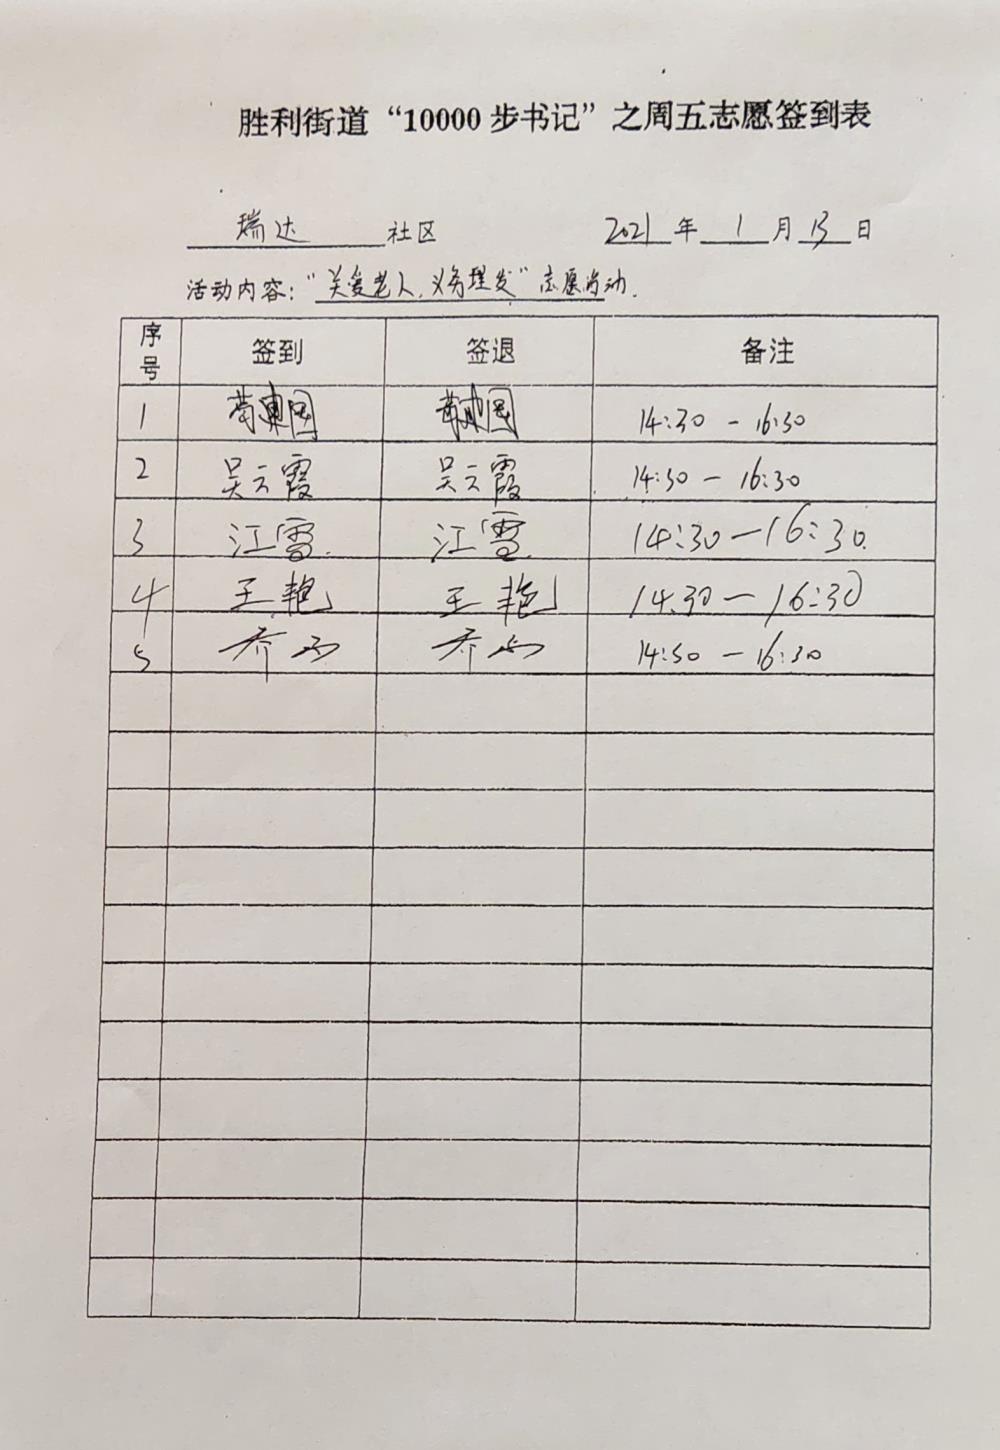 胜利街道“10000步书记”之周五志愿签到表
瑞达 社区 2021年1月13日
活动内容：“关爱老人，义务理发”志愿活动．
序号 签到 签退 备注
1 14:30 - 16:30
2 吴云霞 吴云霞 14:30 - 16:30
3 江雪. 江雪. 14:30 - 16:30.
4 王艳 王艳 14:30 - 16:30
5 乔 乔 14:30 - 16:30